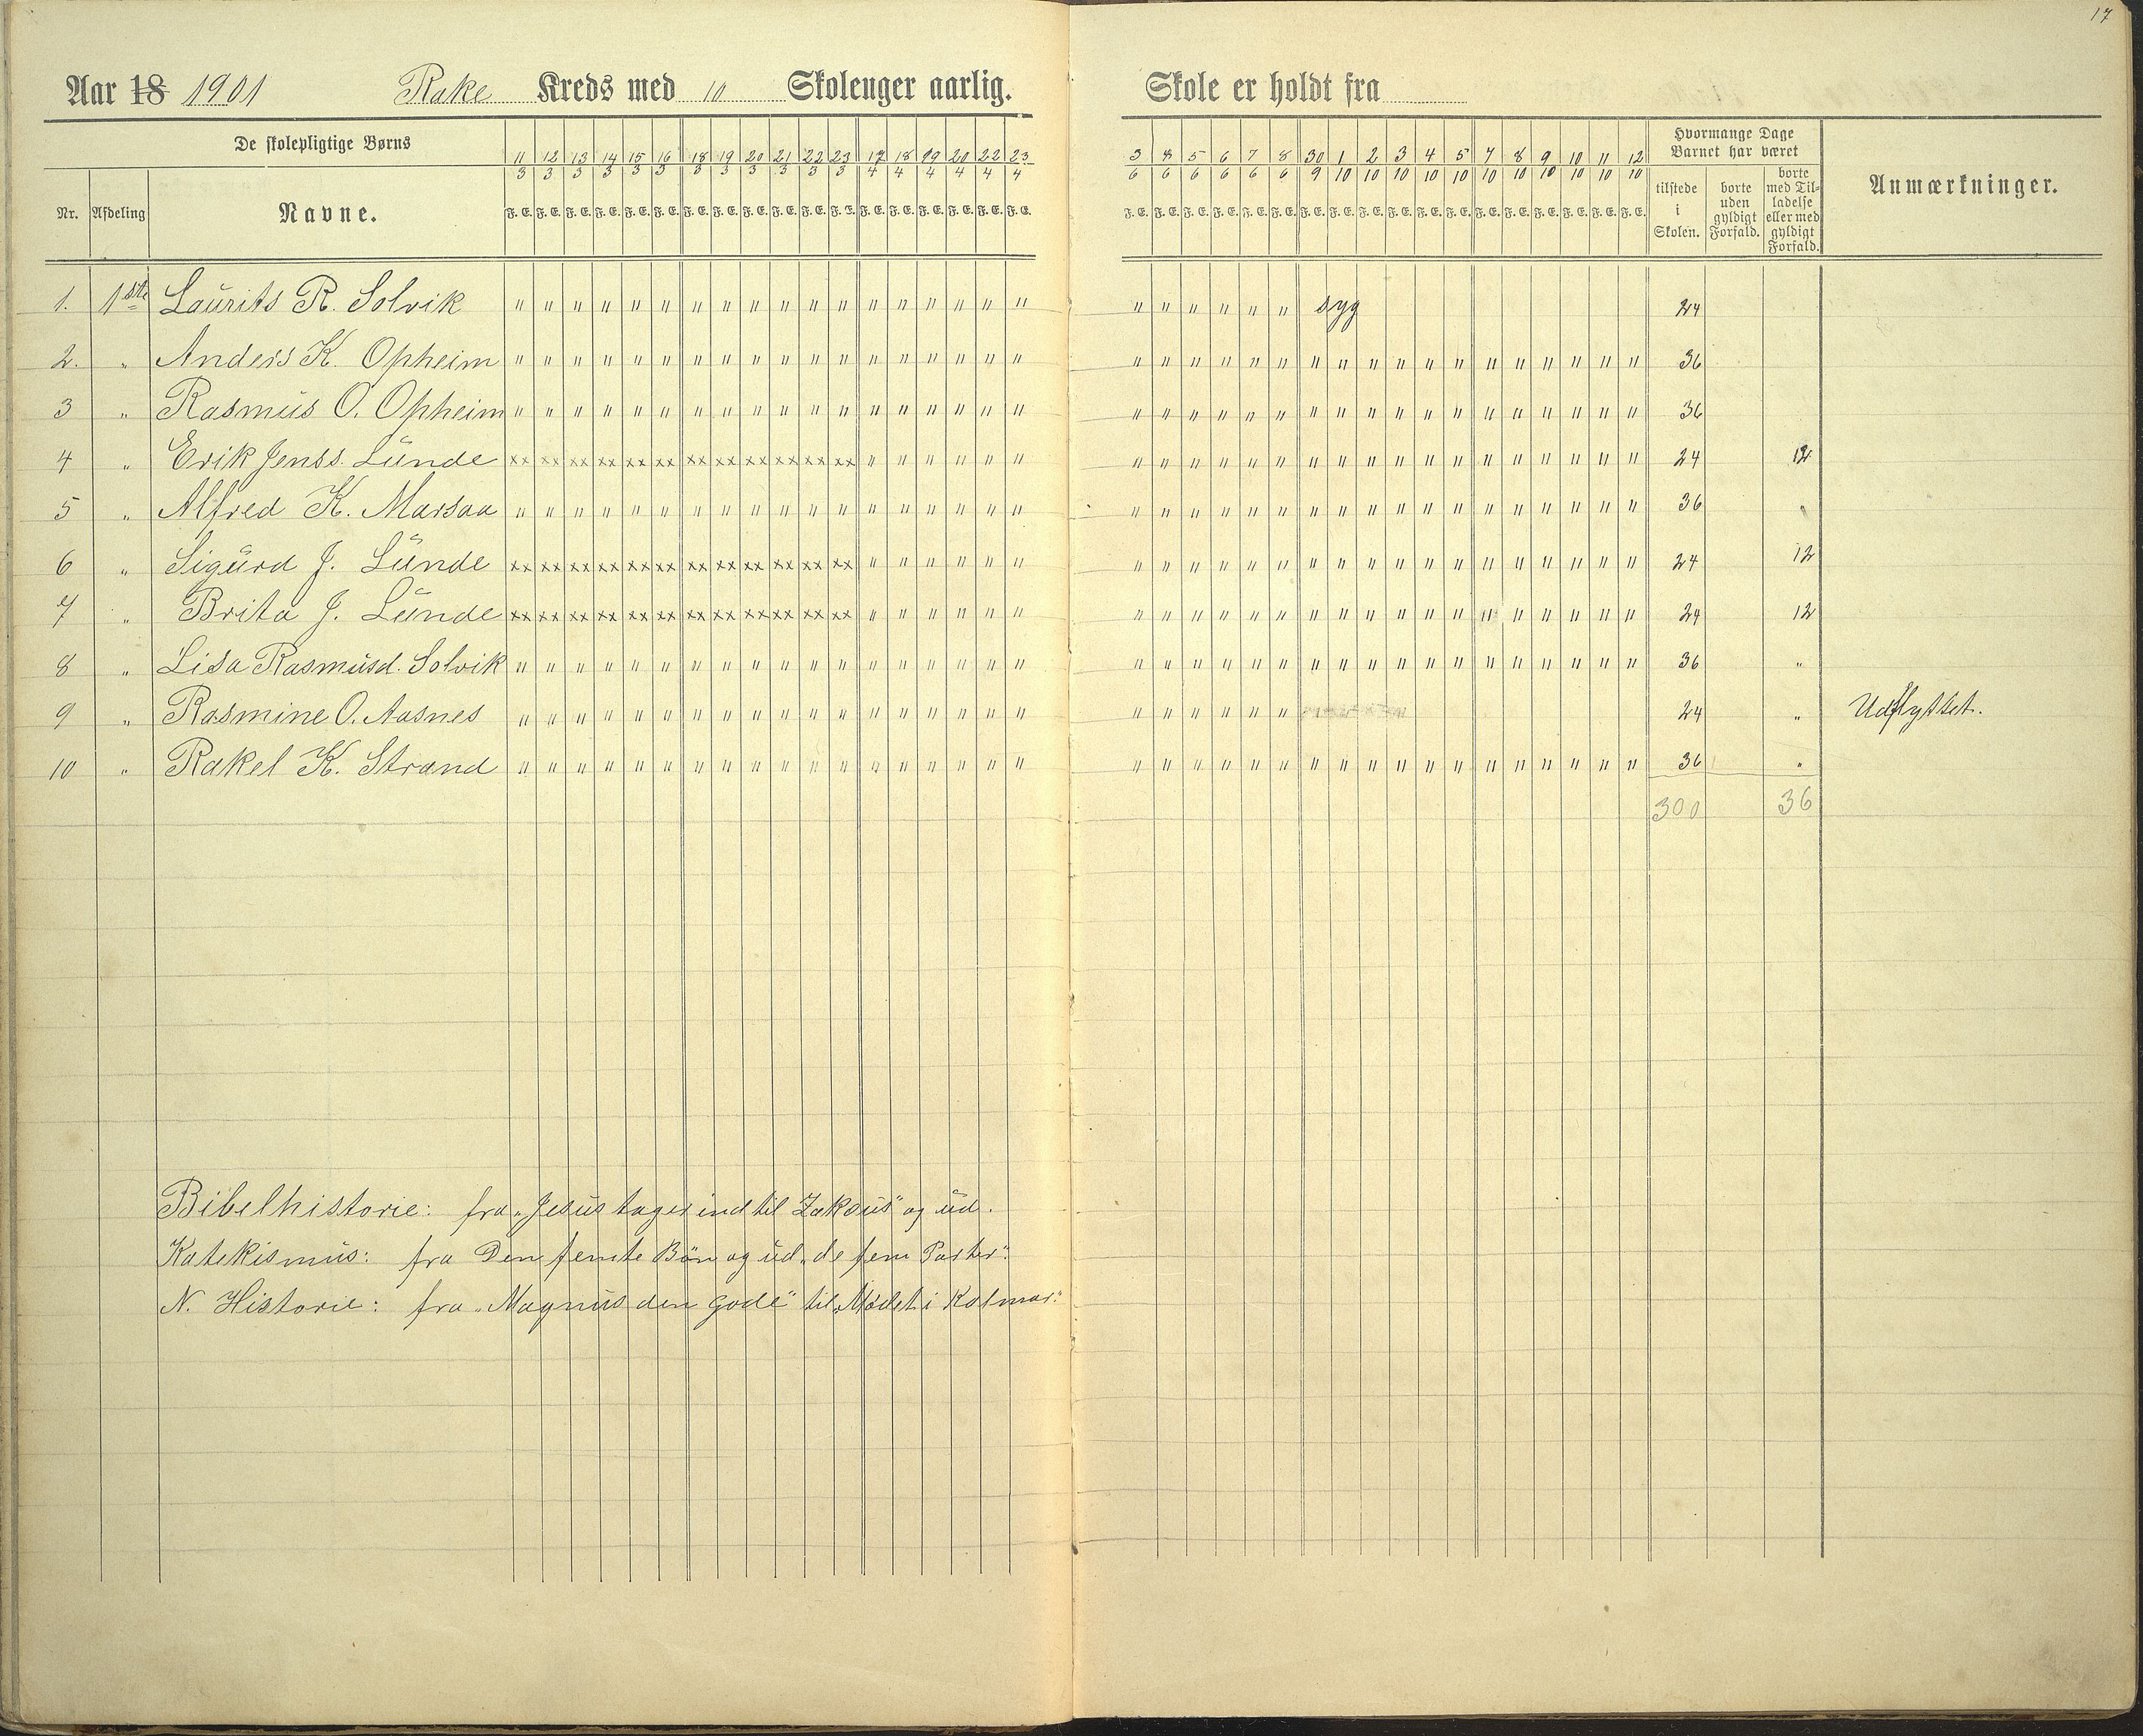 17
Aar 18 1901 Rake Kreds med 10 Skoleuger aarlig. Skole er holdt fra
De skolepligtige Børns
Nr. Afdeling Navne.
11 12 13 14 15 16 18 19 20 21 22 23 17 18 19 20 22 23
3 3 3 3 3 3 3 3 3 3 3 3 4 4 4 4 4 4
F. E. F. E. F. E. F. E. F. E. F. E. F. E. F. E. F. E. F. E. F. E. F. E. F. E. F. E. F. E. F. E. F. E. F. E.
3 4 5 6 7 8 30 1 2 3 4 5 7 8 9 10 11 12
6 6 6 6 6 6 9 10 10 10 10 10 10 10 10 10 10 10
F. E. F. E. F. E. F. E. F. E. F. E. F. E. F. E. F. E. F. E. F. E. F. E. F. E. F. E. F. E. F. E. F. E. F. E.
Hvormange Dage
Barnet har været
tilstede
i
Skolen.
borte
uden
gyldigt
Forfald.
borte
med Til-
ladelse
eller med
gyldigt
Forfald.
Anmærkninger.
1. 1ste Laurits R. Solvik " " " " " " " " " " " " " " " " " " " " " " " " syg 24
2. " Anders K. Opheim " " " " " " " " " " " " " " " " " " " " " " " " " " " " " " " " " " " " 36
3 " Rasmus O. Opheim " " " " " " " " " " " " " " " " " " " " " " " " " " " " " " " " " " " " 36
4 " Erik Jenss. Lunde xx xx xx xx xx xx xx xx xx xx xx xx " " " " " " " " " " " " " " " " " " " " " " " " 24 12
5 " Alfred K. Marsaa " " " " " " " " " " " " " " " " " " " " " " " " " " " " " " " " " " " " 36 "
6 " Sigurd J. Lunde xx xx xx xx xx xx xx xx xx xx xx xx " " " " " " " " " " " " " " " " " " " " " " " " 24 12
7 " Brita J. Lunde xx xx xx xx xx xx xx xx xx xx xx xx " " " " " " " " " " " " " " " " " " " " " " " " 24 12
8 " Lisa Rasmusd. Solvik " " " " " " " " " " " " " " " " " " " " " " " " " " " " " " " " " " " " 36 "
9 " Rasmine O. Aasnes " " " " " " " " " " " " " " " " " " " " " " " " 24 " Udflyttet.
10 " Rakel K. Strand " " " " " " " " " " " " " " " " " " " " " " " " " " " " " " " " " " " " 36 "
300 36
Bibelhistorie: fra „Jesus tager ind til Zakæus" og ud.
Katekismus: fra Den femte Bön og ud „de fem Parter".
N. Historie: fra „Magnus den gode" til „Mødet i Kalmar."